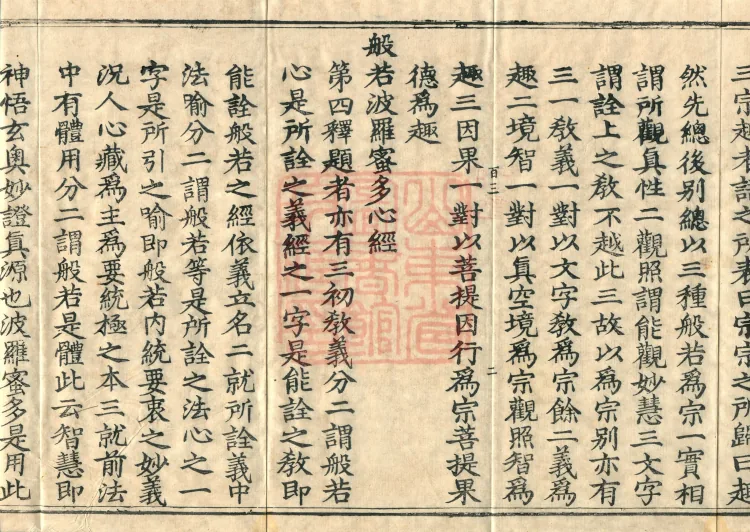 三宗趣者語之所表曰宗宗之所歸曰趣
然先總後別總以三種般若為宗一實相
謂所觀真性二觀照謂能觀妙慧三文字
謂詮上之教不越此三故以為宗別亦有
三一教義一對以文字教為宗餘二義為
趣二境智一對以真空境為宗觀照智為
趣三因果一對以菩提因行為宗菩提果
德為趣
般若波羅蜜多心經
第四釋題者亦有三初教義分二謂般若
心是所詮之義經之一字是能詮之教即
能詮般若之經依義立名二就所詮義中
法喻分二謂般若等是所詮之法心之一
字是所引之喻即般若內統要衷之妙義
況人心藏為主為要統極之本三就前法
中有體用分二謂般若是體此云智慧即
神悟玄奧妙證真源也波羅蜜多是用此
百三
二